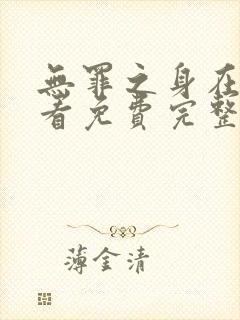 無罪之身在
看免費完整
薄金清